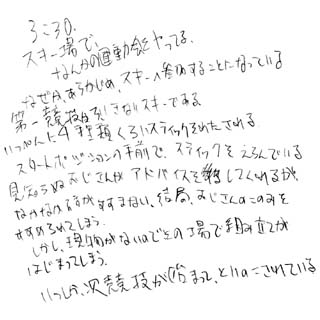 3:30.
スキー場で、
なんかの運動会をやってる。
なぜか、あらかじめ、スキーへ参加することになっている
第一競技は スキーである
いっぺんに4種類くらいスティックをわたされる。
スタートポジションの手前で、スティックをえらんでいる
見知らぬおじさんがアドバイスを してくれるが、
なかなか すすまない、結局、おじさんのこのみを
すすめられてしまう。
しかし、現物がないのでその場で組み立てが
はじまってしまう。
いつしか、次競技が始まって、 にされている